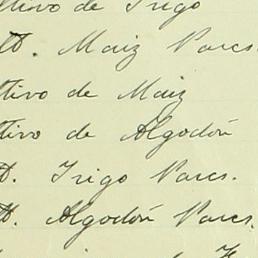 tivo de Trigo
D. Maiz Parcs.
tivo de Maiz
tivo de Algodón
D. Trigo Parcs.
D. Algodón Parcs.